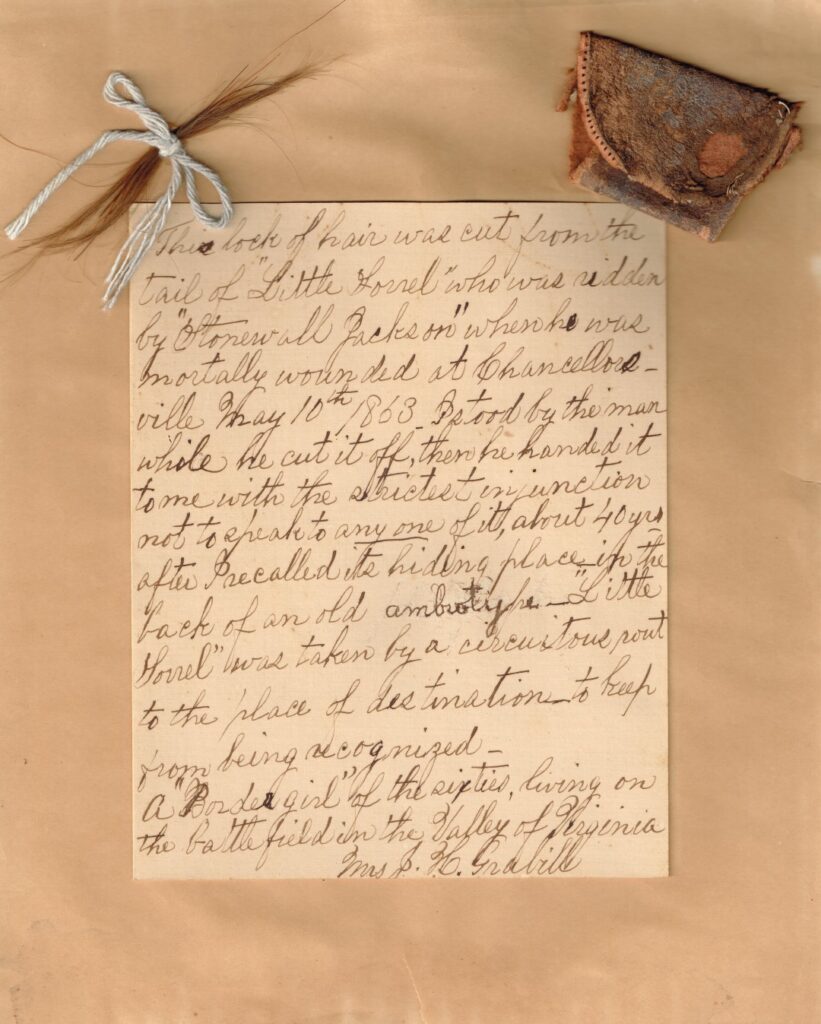 This lock of hair was cut from the
tail of "Little Sorrel" who was ridden
by "Stonewall Jackson" when he was
mortally wounded at Chancellors-
ville May 10th 1863_ I stood by the man
while he cut it off, then he handed it
to me with the strictest injunction
not to speak to any one of it, about 40 yrs
after I recalled its hiding place_in the
back of an old ambrotype_"Little
Sorrel" was taken by a circuitous rout
to the place of destination_to keep
from being recognized_
A "Border girl" of the sixties, living on
the battlefield in the Valley of Virginia
Mrs J. H. Grabill